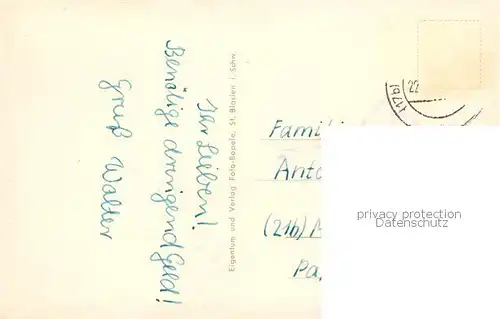 Ihr Lieben!
Benötige dringend Geld!
Gruß Walter
Eigentum und Verlag Foto-Bopele, St. Blasien i. Schw.
Famili
Anto
(21b)
Pa
privacy protection
Datenschutz
22